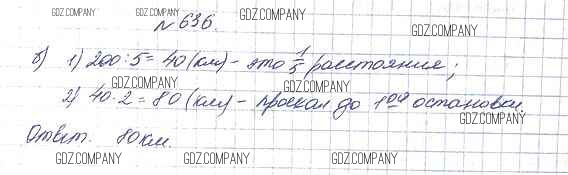 GDZ.COMPANY GDZ.COMPANY
№ 636. GDZ.COMPANY
б) 1) 200:5=40(км) - это 1/5 расстояния;
GDZ.COMPANY GDZ.COMPANY
2) 40·2=80(км) - проехал до 1ой остановки.
GDZ.COMPANY
Ответ. 80км.
GDZ.COMPANY GDZ.COMPANY GDZ.COMPANY